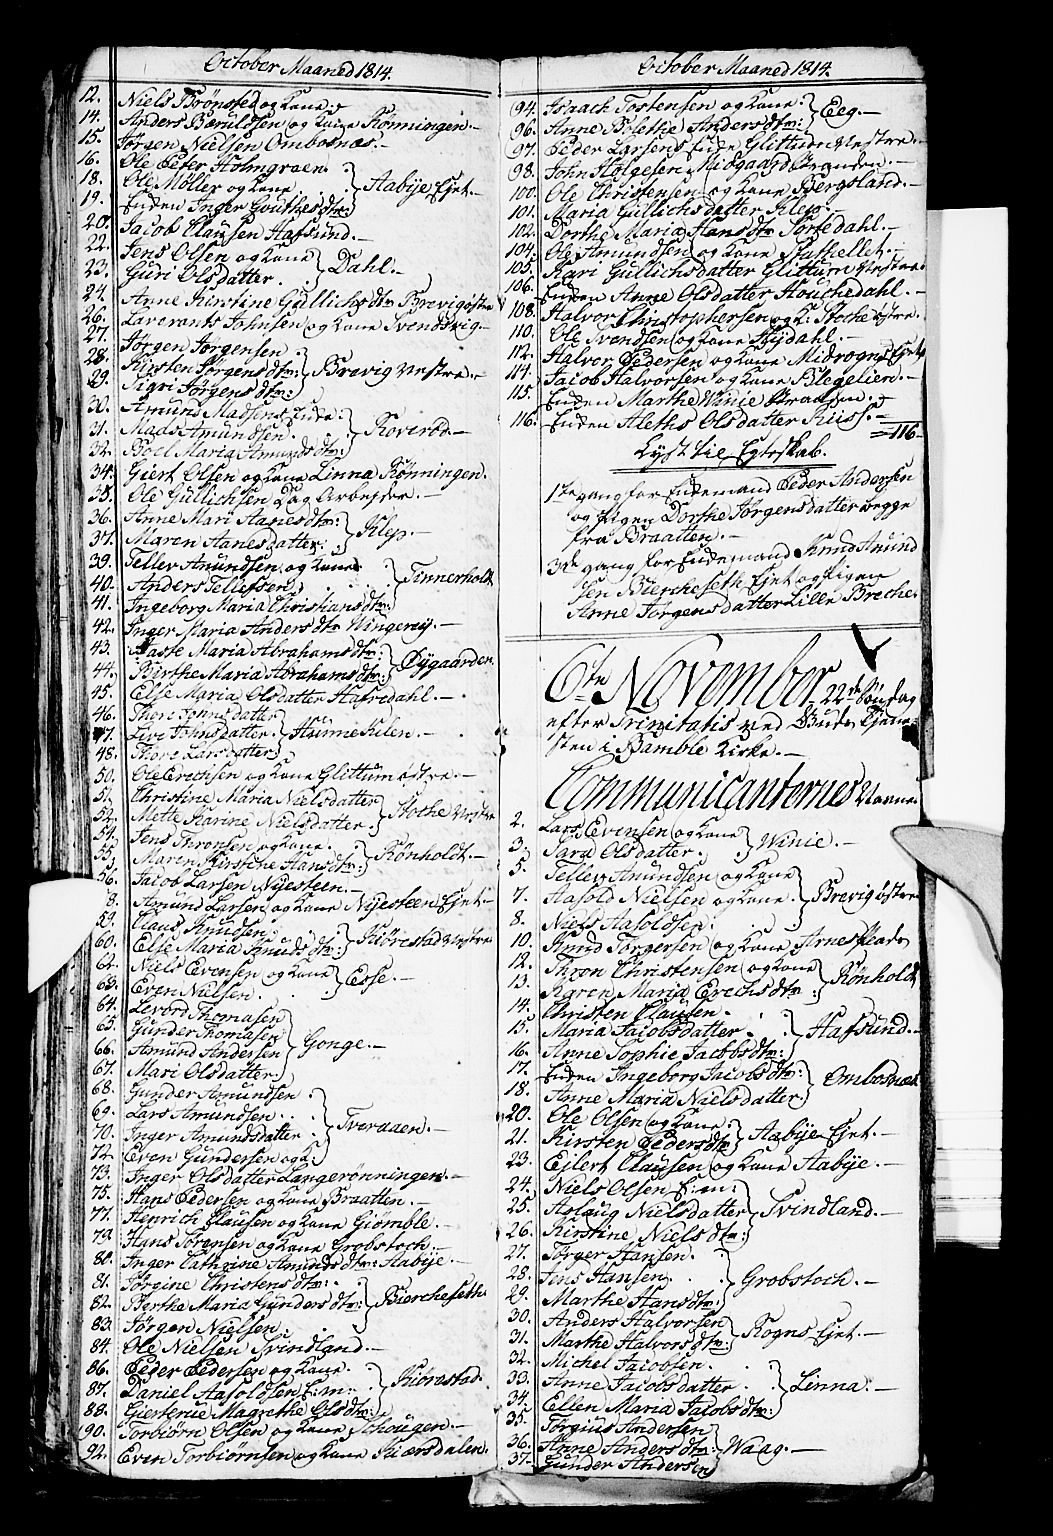 October Maaned 1814.
12. Niels Brønsted og Kone.
14. Anders Bæruldsen og Kone Rønningen.
15. Jørgen Nielsen Ombosnæs.
16. Ole Peter Holmgraen.
18. Ole Møller og Kone. Aabÿe Ejet.
19. Enken Inger Gouthesdtr:
20. Jacob Clausen Hafsund.
22. Jens Olsen og Kone
23. Guri Olsdatter. Dahl.
24. Anne Kirstine Gullichsdtr Brevig østre
26. Laverants Johnsen og Kone Svendsvig.
27. Jørgen Jørgensen
28. Kirsten Jørgensdtr: Brevig Vestre.
29. Sigri Jørgensdtr:
30. Amund Madsens Enke.
31. Mads Amundsen. Roverød.
32. Boel Maria Amundsdtr:
34. Giert Olsen og Kone Linna Rønningen.
35. Ole Gullichsen Dag Arbejder.
36. Anne Mari Aanesdtr:
37. Maren Aanesdatter: Klep.
39. Tellev Amundsen og Kone
40. Anders Tellefsen Tinnerholt
41. Ingeborg Maria Christiansdtr:
42. Inger Maria Andersdtr Wingereÿ.
43. Aaste Maria Abrahamsdtr:
44. Birthe Maria Abrahamsdtr: Øÿgaarden
45. Else Maria Olsdatter Hafredahl.
46. Thore Johnsdatter
47. Live Johnsdatter. Hummekilen.
48. Thore Larsdatter
50. Ole Erechsen og Kone Glittum østre.
51. Christine Maria Nielsdatter
52. Mette Karine Nielsdatter. Stothe Vestre
54. Jens Thronsen og Kone.
55. Maren Kirstine Hansdtr: Rønholdt.
56. Jacob Larsen Nÿesteen.
8. Amund Larsen og Kone Nÿesteen Ejet.
59. Claus Knudsen.
60. Else Maria Knudsdtr: Kiørestad Vestre
62. Niels Evensen og Kone
63. Even Nielsen. Esse.
64. Levord Thomasen
65. Gunder Thomasen
66. Amund Andersen Gonge.
67. Mari Olsdatter.
68. Gunder Amundsen
69. Lars Amundsen.
70. Inger Amundsdatter Tveraaen.
72. Even Gundersen og K:
73. Inger Olsdatter Langerønningen.
75. Hans Pedersen og Kone Braatten.
77. Henrich Clausen og Kone Giømble.
79. Hans Sørensen og Kone Grobstoch.
80. Inger Cathrine Amundsdtr: Aabÿe.
81. Jørgine Christensdtr:
82. Berthe Maria Gundersdtr: Biercheseth.
83. Jørgen Nielsen.
84. Ole Nielsen Svindland.
86. Peder Pedersen og Kone.
87. Daniel Aasoldsen E:m: Kiørestad.
88. Gierterue Magrethe Olsdtr:
90. Torbiørn Olsen og Kone Schougen.
92. Even Torbiørnsen og Kone Kiærsdalen.
October Maaned 1814.
94. Isaach Tostensen og Kone
96. Anne Bolethe Andersdtr: Eeg.
97. Peder Larsens Enke Glittum Vestre.
98. John Holgesen Midgaard Stranden.
100. Ole Christensen og Kone Bergsland.
101. Maria Gullichsdatter Klep.
102. Dorthe Maria Hansdtr Tortedahl.
104. Ole Amundsen og Kone Stathellet.
105. Kari Gullichsdatter Glittum Vestre
106. Enken Anne Olsdatter Houchedahl.
108. Halvor Christophersen og K: Stothe østre.
110. Ole Svendsen og Kone Skÿdahl.
112. Halvor Pedersen og Kone Midrogns Ejet
114. Jacob Halvorsen og Kone Blegelien.
115. Enken Marthe Winie Straaten.
116. Enken Aleths Olsdatter Riis.
116.
Lyst til Egteskab.
1ste gang for Enkemand Peder Andersen
og Pigen Dorthe Jørgensdatter begge
fra Braatten.
3de gang for Enkemand Knud Amund
sen Biercheseth Ejet og Pigen
Anne Jørgensdatter Lille Breche.
6te November 22de Søndag
efter Trinitatis ved Guds Tjene-
sten i Bamble Kirke.
Communicanternes Navne
2. Lars Evensen og Kone
3. Sara Olsdatter. Winie.
5. Tellev Amundsen og Kone
7. Aasold Nielsen og Kone. Brevig østre
8. Niels Aasoldsen.
10. Knud Torgersen og Kone Arnes Plads
12. Thron Christensen og Kone
13. Karen Maria Erechsdtr Rønholdt
14. Christen Clausen.
15. Maria Jacobsdatter. Hafsund.
16. Anne Sophie Jacobsdtr:
17. Enken Ingeborg Jacobsdtr: Ombosnæs
18. Anne Maria Nielsdatter
20. Ole Olsen og Kone.
21. Kirsten Pedersdtr Aabÿe Ejet.
23. Ejlert Clausen og Kone Aabÿe.
24. Niels Olsen E:m:
25. Aslaug Nielsdatter Svindland.
26. Kirstine Nielsdtr:
27. Torger Hansen.
28. Jens Hansen. Grobstoch.
29. Marthe Hansdtr:
30. Anders Halvorsen
31. Marthe Halvorsdtr: Rogns Ejet.
32. Michel Jacobsen.
33. Anne Jacobsdatter. Linna.
34. Ellen Maria Jacobsdtr:
35. Torgius Andersen
36. Anne Andersdtr: Waag.
37. Gunder Andersen